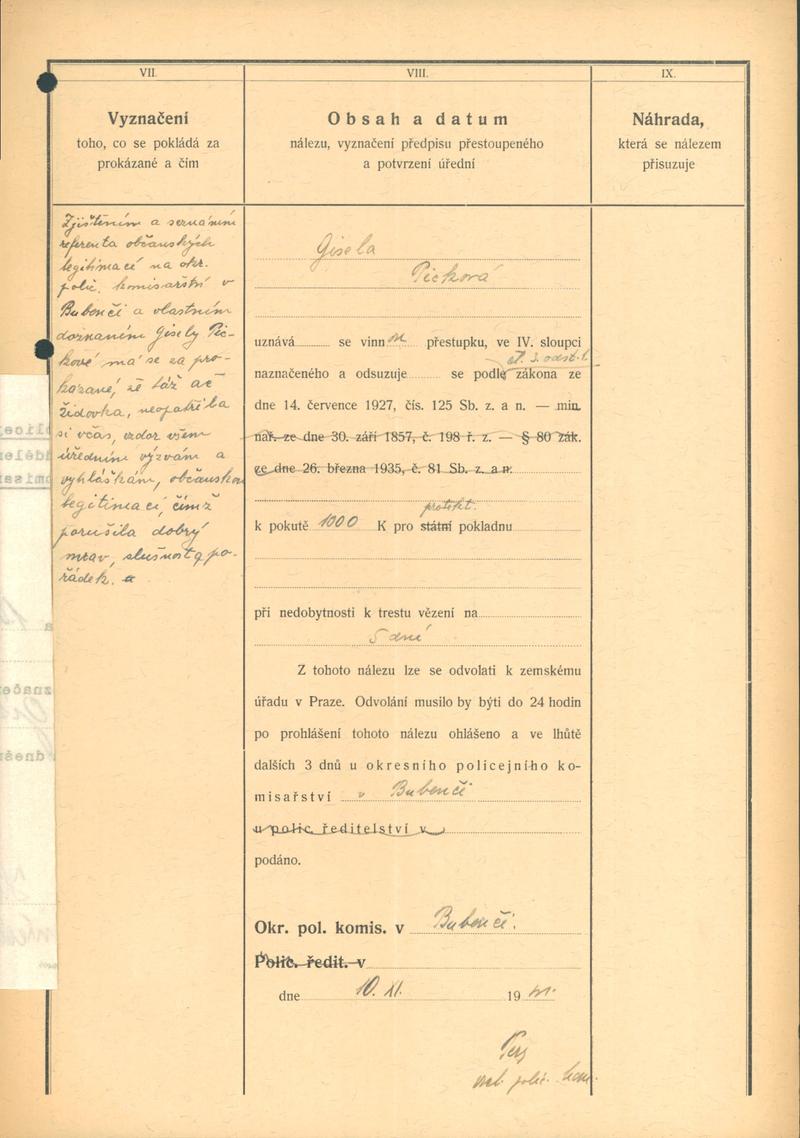 VII.
Vyznačení
toho, co se pokládá za
prokázané a čím
Zjištěním a seznáním
referenta občanských
legitimací na okr.
polic. komisařství v
Bubenči a vlastním
doznáním Gisely Pic-
kové má se za pro-
kázané, že táž ač
židovka, neopatřila
si včas, vzdor všem
úředním výzvám a
vyhláškám, občanskou
legitimaci, čímž
porušila dobrý
mrav, slušnost a po-
řádek.
VIII.
Obsah a datum
nálezu, vyznačení předpisu přestoupeného
a potvrzení úřední
Gisela
Picková
uznává se vinn přestupku, ve IV. sloupci
čl. 3. odst. 1.
naznačeného a odsuzuje se podle zákona ze
dne 14. července 1927, čís. 125 Sb. z. a n. — min.
nař. ze dne 30. září 1857, č. 198 ř. z. — § 80 zák.
ze dne 26. března 1935, č. 81 Sb. z. a n.
protekt.
k pokutě 1000 K pro státní pokladnu
při nedobytnosti k trestu vězení na
5 dní
Z tohoto nálezu lze se odvolati k zemskému
úřadu v Praze. Odvolání musilo by býti do 24 hodin
po prohlášení tohoto nálezu ohlášeno a ve lhůtě
dalších 3 dnů u okresního policejního ko-
misařství v Bubenči
u polic. ředitelství v
podáno.
Okr. pol. komis. v Bubenči.
Polic. ředit. v
dne 10. XI. 19
polic.
IX.
Náhrada,
která se nálezem
přisuzuje